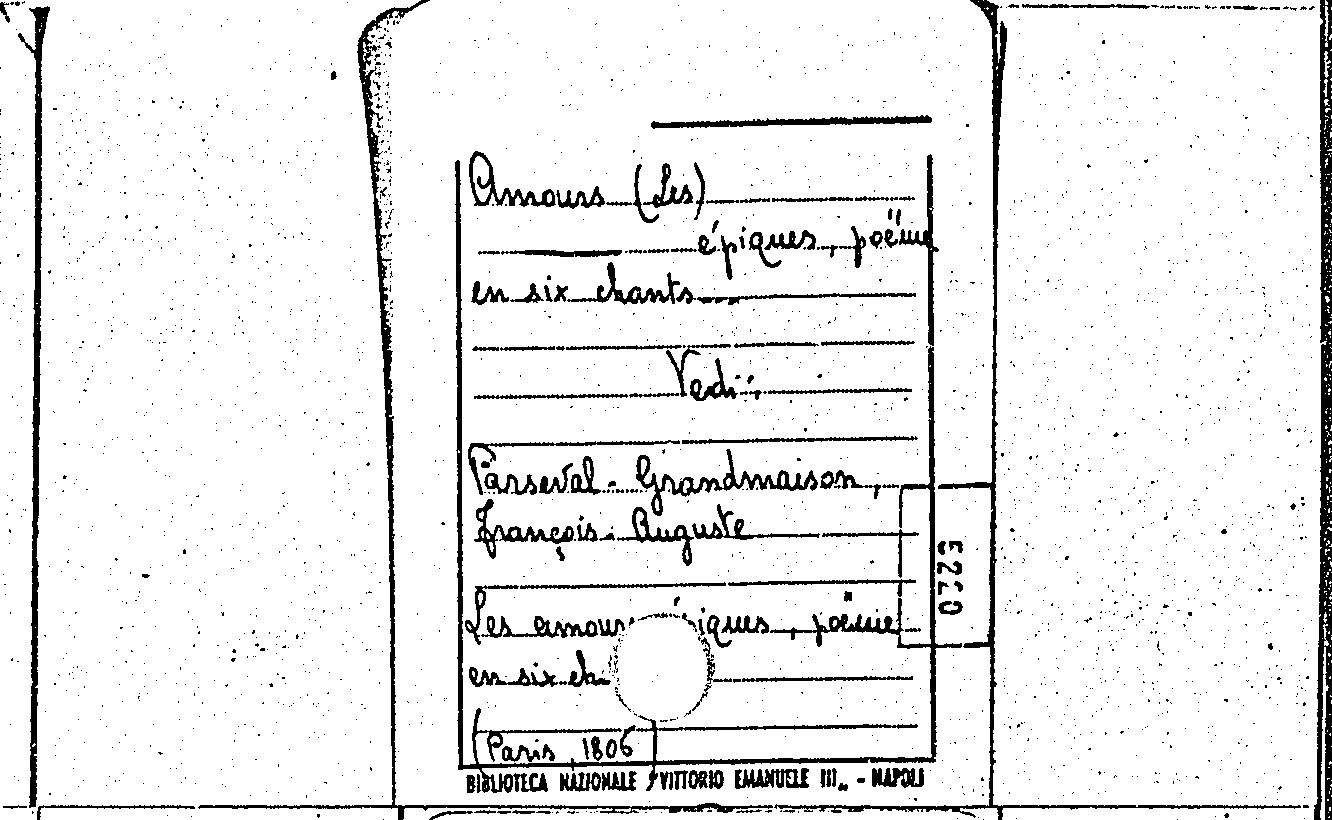 Amours (Les)
épiques, poëme
en six chants...
Vedi:
Parseval-Grandmaison,
François-Auguste
Les amours iques, poëme
en six ch
(Paris, 1806)
BIBLIOTECA NAZIONALE "VITTORIO EMANUELE III" - NAPOLI